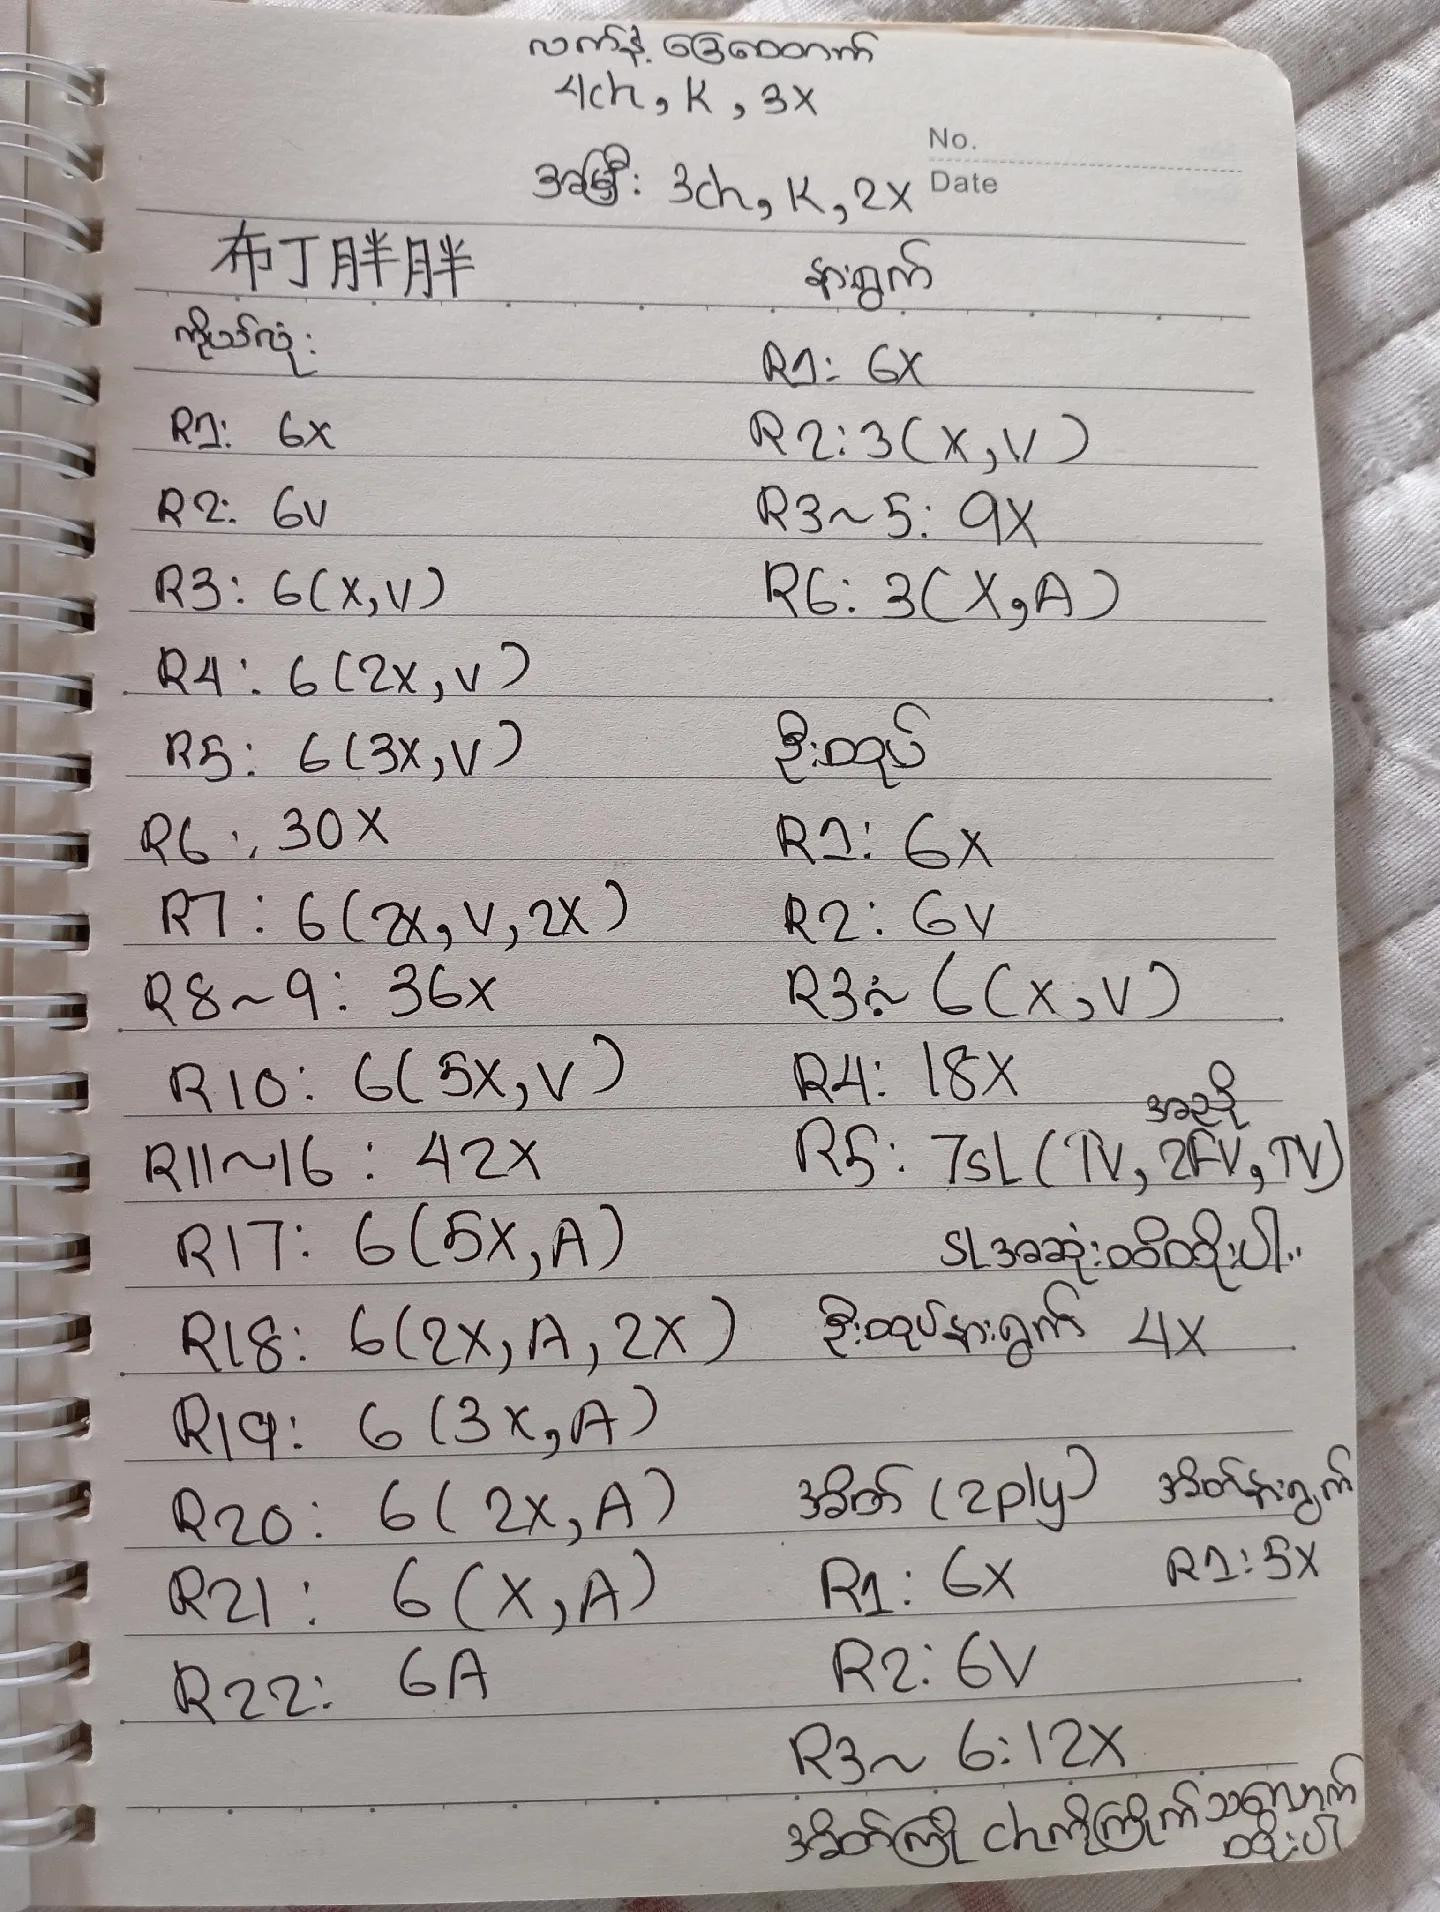 လက်နဲ့ ခြေထောက်
4ch, K, 3X
အမြီး: 3ch, K, 2X
No.
Date
布丁胖胖
ကိုယ်လုံး:
R1: 6X
R2: 6V
R3: 6(X,V)
R4: 6(2X,V)
R5: 6(3X,V)
R6: 30X
R7: 6(2X,V,2X)
R8~9: 36X
R10: 6(5X,V)
R11~16: 42X
R17: 6(5X,A)
R18: 6(2X,A,2X)
R19: 6(3X,A)
R20: 6(2X,A)
R21: 6(X,A)
R22: 6A
နားရွက်
R1: 6X
R2: 3(X,V)
R3~5: 9X
R6: 3(X,A)
ဦးထုပ်
R1: 6X
R2: 6V
R3: 6(X,V)
R4: 18X
R5: 7SL(TV, 2FV, TV)
SLအဆုံးထိထိုးပါ..
ဦးထုပ်နားရွက် 4X
အိတ် (2ply)
R1: 6X
R2: 6V
R3~6: 12X
အိတ်နားရွက်
R1: 5X
အိတ်ကြိုး chကိုကြိုက်သလောက်
ထိုးပါ